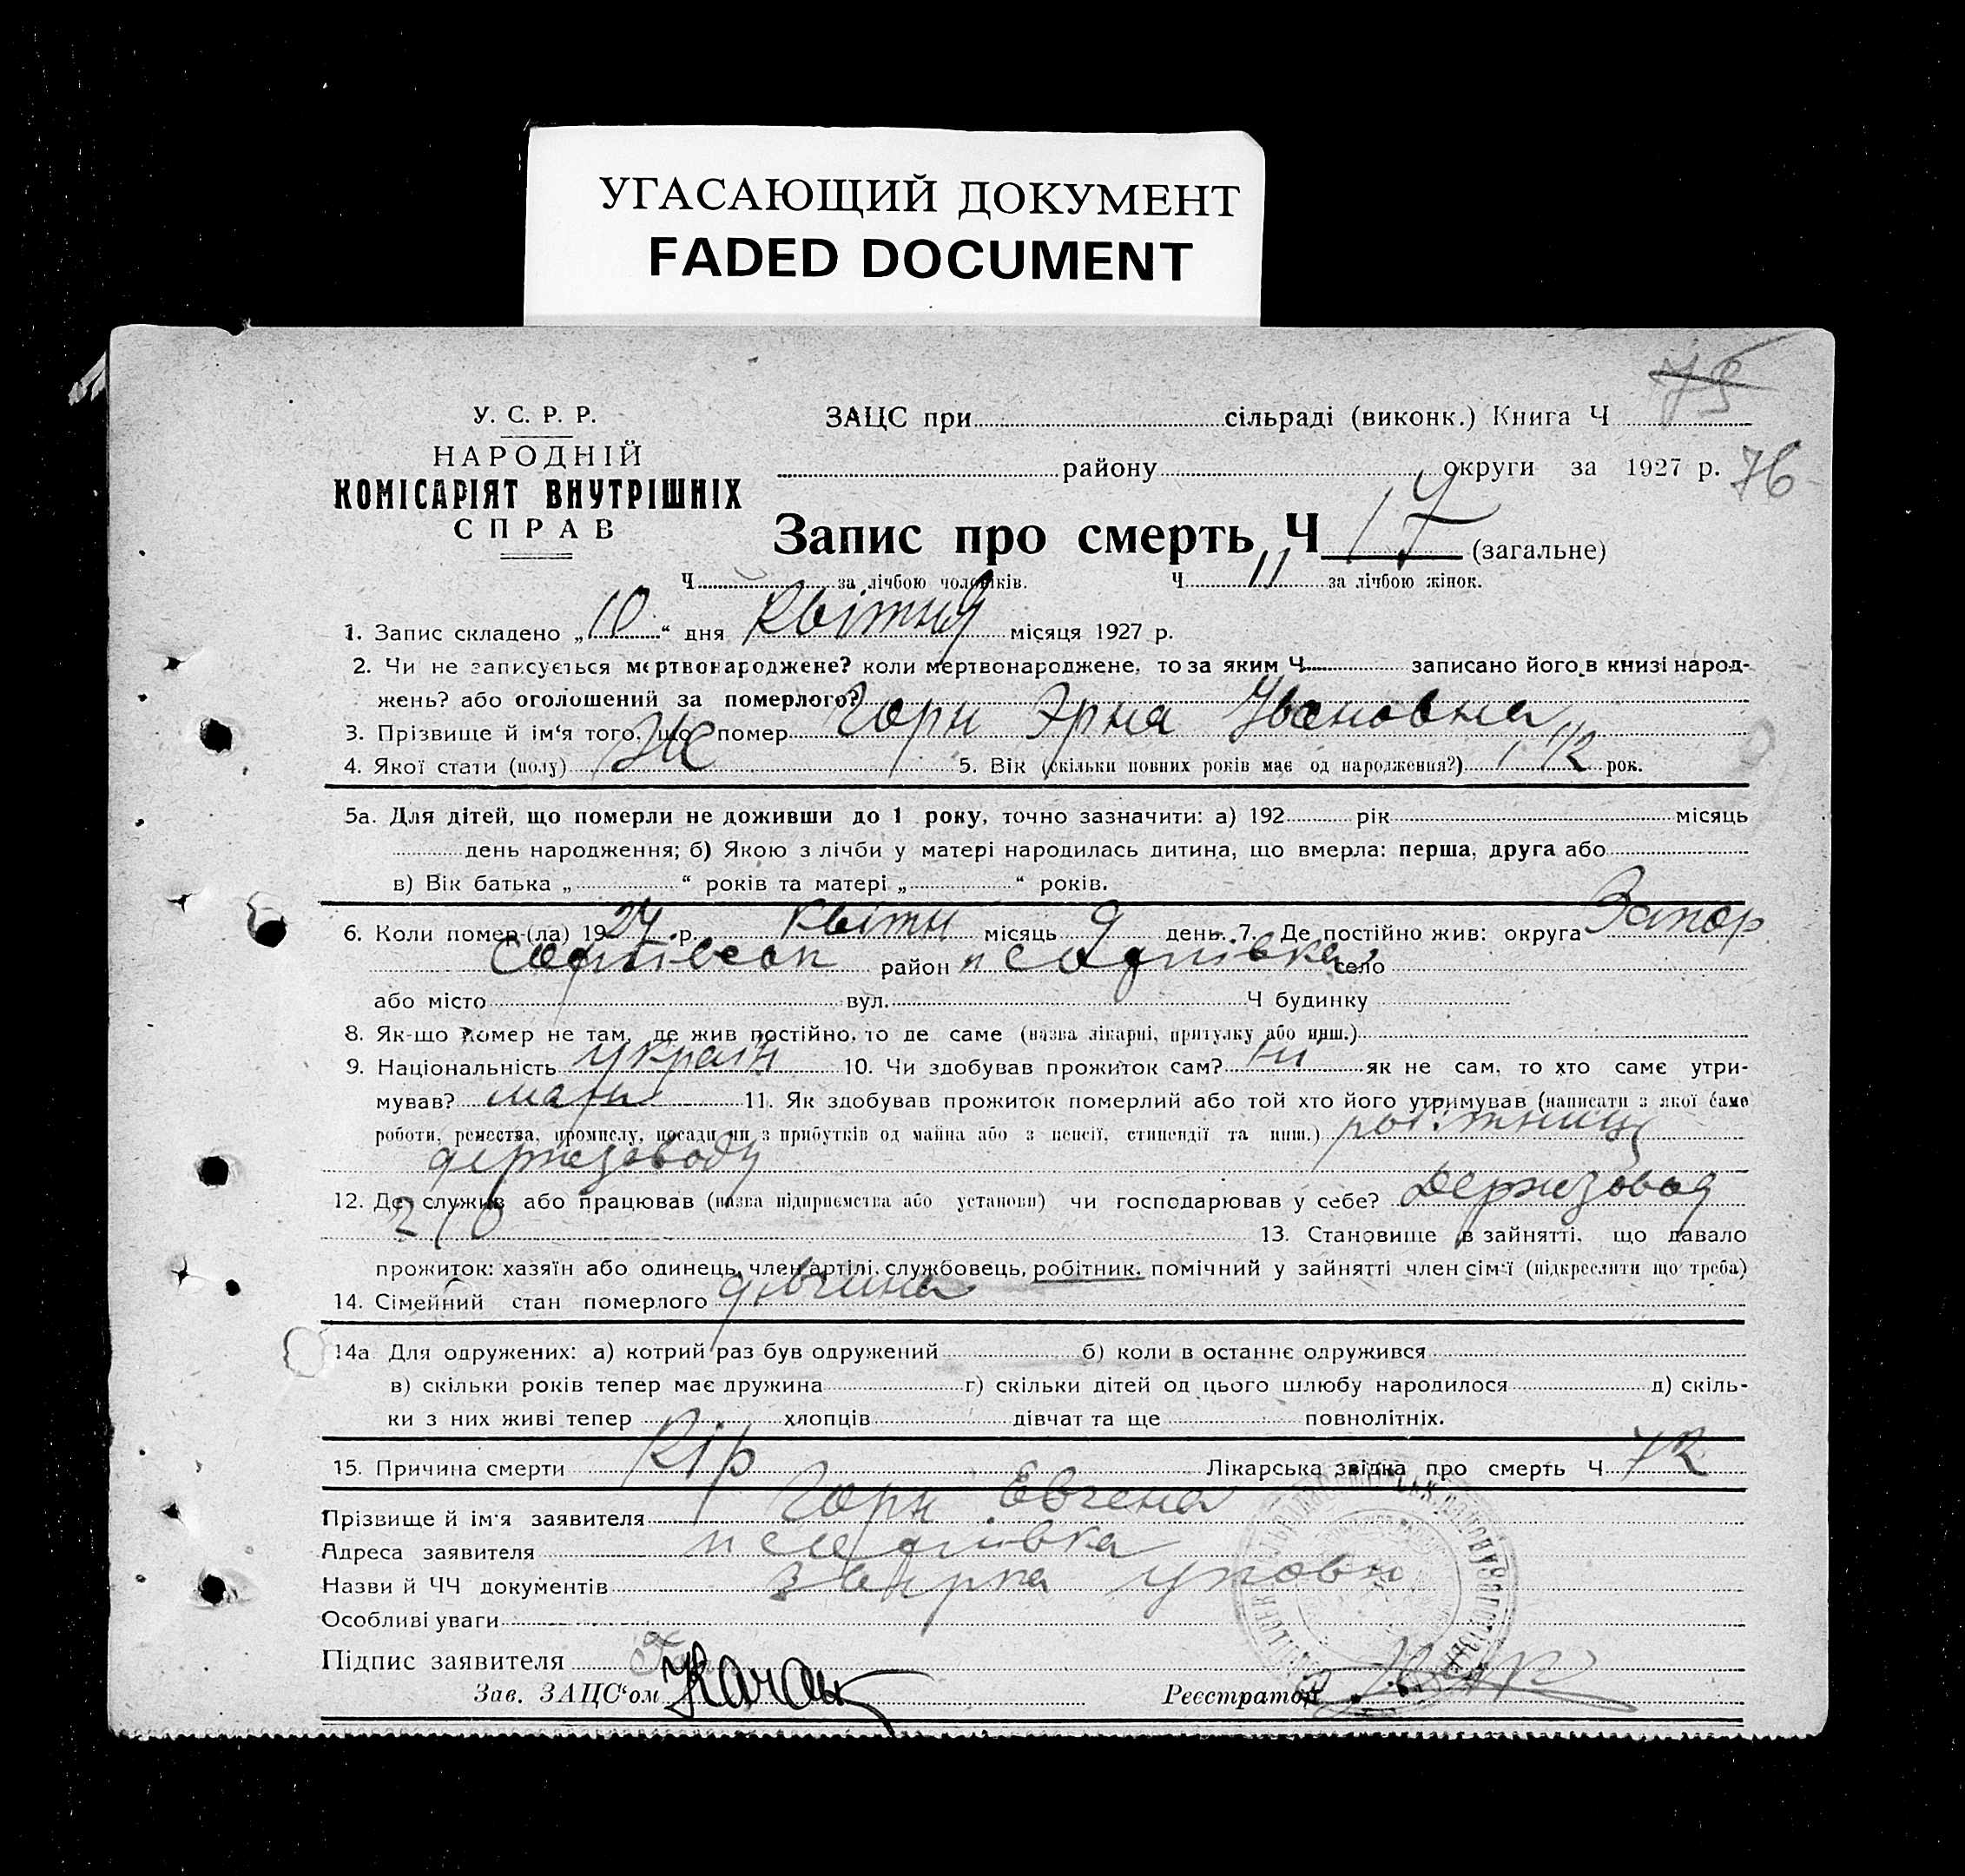 УГАСАЮЩИЙ ДОКУМЕНТ
FADED DOCUMENT
75
У. С. Р. Р.
НАРОДНІЙ
КОМІСАРІЯТ ВНУТРІШНІХ
СПРАВ
ЗАЦС при сільраді (виконк.) Книга Ч
району округи за 1927 р. 76
Запис про смерть Ч 17 (загальне)
Ч за лічбою чоловіків. Ч 11 за лічбою жінок.
1. Запис складено „10“ дня Квітня місяця 1927 р.
2. Чи не записується мертвонароджене? коли мертвонароджене, то за яким Ч записано його в книзі народ-
жень? або оголошений за померлого?
3. Прізвище й ім‘я того, що помер Горн Эрна Ивановна
4. Якої стати (полу) Ж 5. Вік (скільки повних років має од народження?) 1 1/2 рок.
5а. Для дітей, що померли не доживши до 1 року, точно зазначити: а) 192 рік місяць
день народження; б) Якою з лічби у матері народилась дитина, що вмерла: перша, друга або
в) Вік батька „ “ років та матері „ “ років.
6. Коли помер-(ла) 1927 р. квітн місяць 9 день. 7. Де постійно жив: округа Запор
Софіївськ район п Софіївка село
або місто вул. Ч будинку
8. Як-що помер не там, де жив постійно, то де саме (назва лікарні, притулку або инш.)
9. Національність україн 10. Чи здобував прожиток сам? ні як не сам, то хто саме утри-
мував? мати 11. Як здобував прожиток померлий або той хто його утримував (написати з якої саме
роботи, ремества, промислу, посади чи з прибутків од майна або з пенсії, стипендії та инш.) робітниця
держзаводу
12. Де служив або працював (назва підприємства або установи) чи господарював у себе? Держзавод
13. Становище в зайнятті, що давало
прожиток: хазяїн або одинець, член артілі, службовець, робітник, помічний у зайнятті член сім‘ї (підкреслити що треба)
14. Сімейний стан померлого дівчина
14а Для одружених: а) котрий раз був одружений б) коли в останнє одружився
в) скільки років тепер має дружина г) скільки дітей од цього шлюбу народилося д) скіль-
ки з них живі тепер хлопців дівчат та ще повнолітніх.
15. Причина смерти Кір Лікарська звідка про смерть Ч 72
Прізвище й ім‘я заявителя Горн Евгена
Адреса заявителя п Софіївка
Назви й ЧЧ документів звірка
Особливі уваги
Підпис заявителя
Зав. ЗАЦС‘ом
Реєстратор